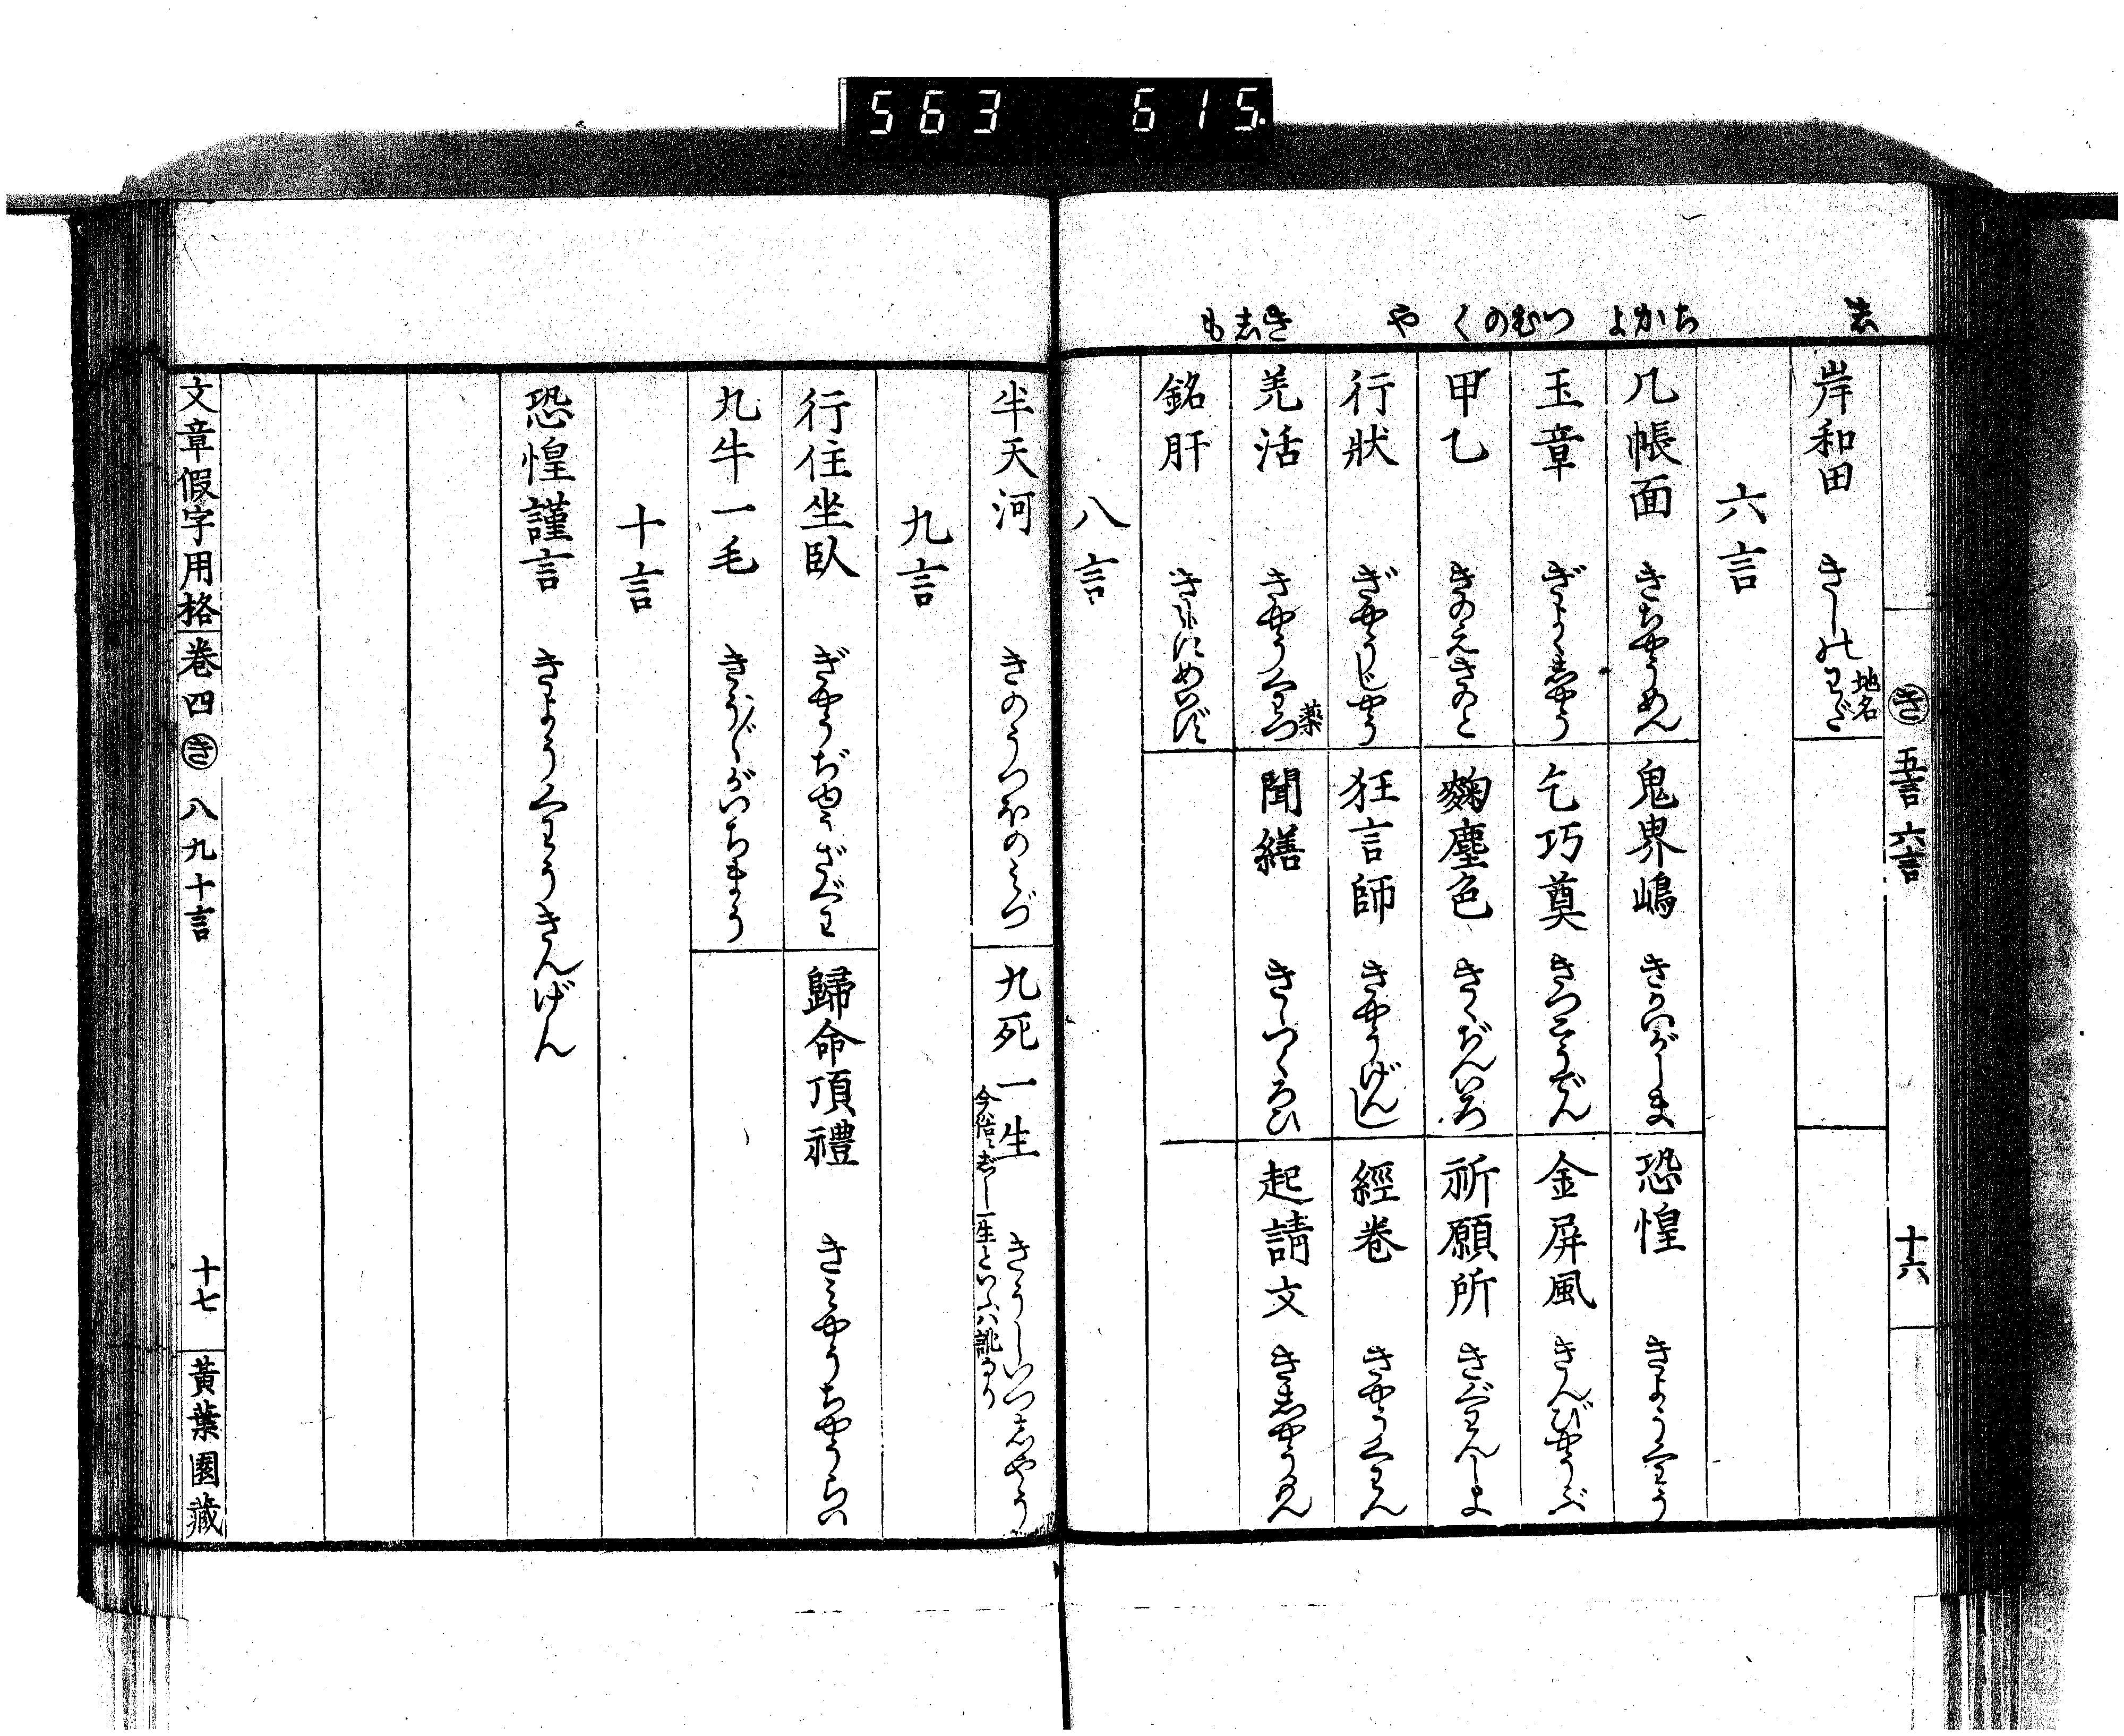 563 615
き 五言 六言 十六
し
ちかよ つむのく や きしも
岸和田 きしのわだ 地名
六言
几帳面 きちやうめん 鬼界嶋 きかいがしま 恐惶 きようくわう
玉章 ぎよくしやう 乞巧奠 きつこうでん 金屏風 きんびやうぶ
甲乙 きのえきのと 麴塵色 きくぢんいろ 祈願所 きぐわんしよ
行狀 ぎやうじやう 狂言師 きやうげんし 經卷 きやうくわん
羌活 きやうくわつ 薬 聞繕 きゝつくろひ 起請文 きしやうもん
銘肝 きもにめいず
八言
半天河 きのうつほのみづ 九死一生 きうしいつしやう
今俗ニ 一生といふハ訛なり
九言
行住坐臥 ぎやうぢゆうざぐわ 歸命頂禮 きみやうちやうらい
九牛一毛 きうぎうがいちまう
十言
恐惶謹言 きようくわうきんげん
文章假字用格 卷四 き 八九十言 十七 黃葉園藏